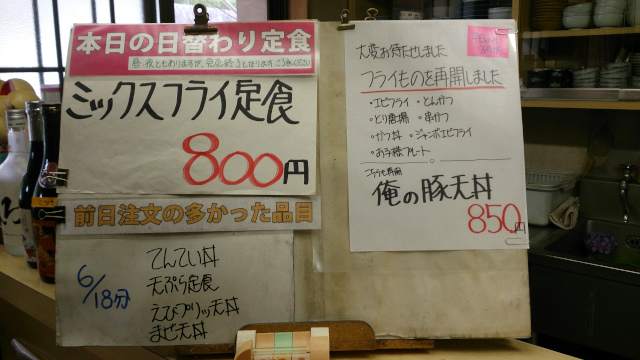 本日の日替わり定食
ミックスフライ定食
800円
前日注文の多かった品目
6/18分
てんてい丼
天ぷら定食
えびプリッツ天丼
まぜ天丼
大変お待たせしました
フライものを再開しました
・エビフライ ・とんかつ
・とり唐揚 ・串かつ
・かつ丼 ・ジャンボエビフライ
・お子様プレート
こちらも再開
俺の豚天丼
850円